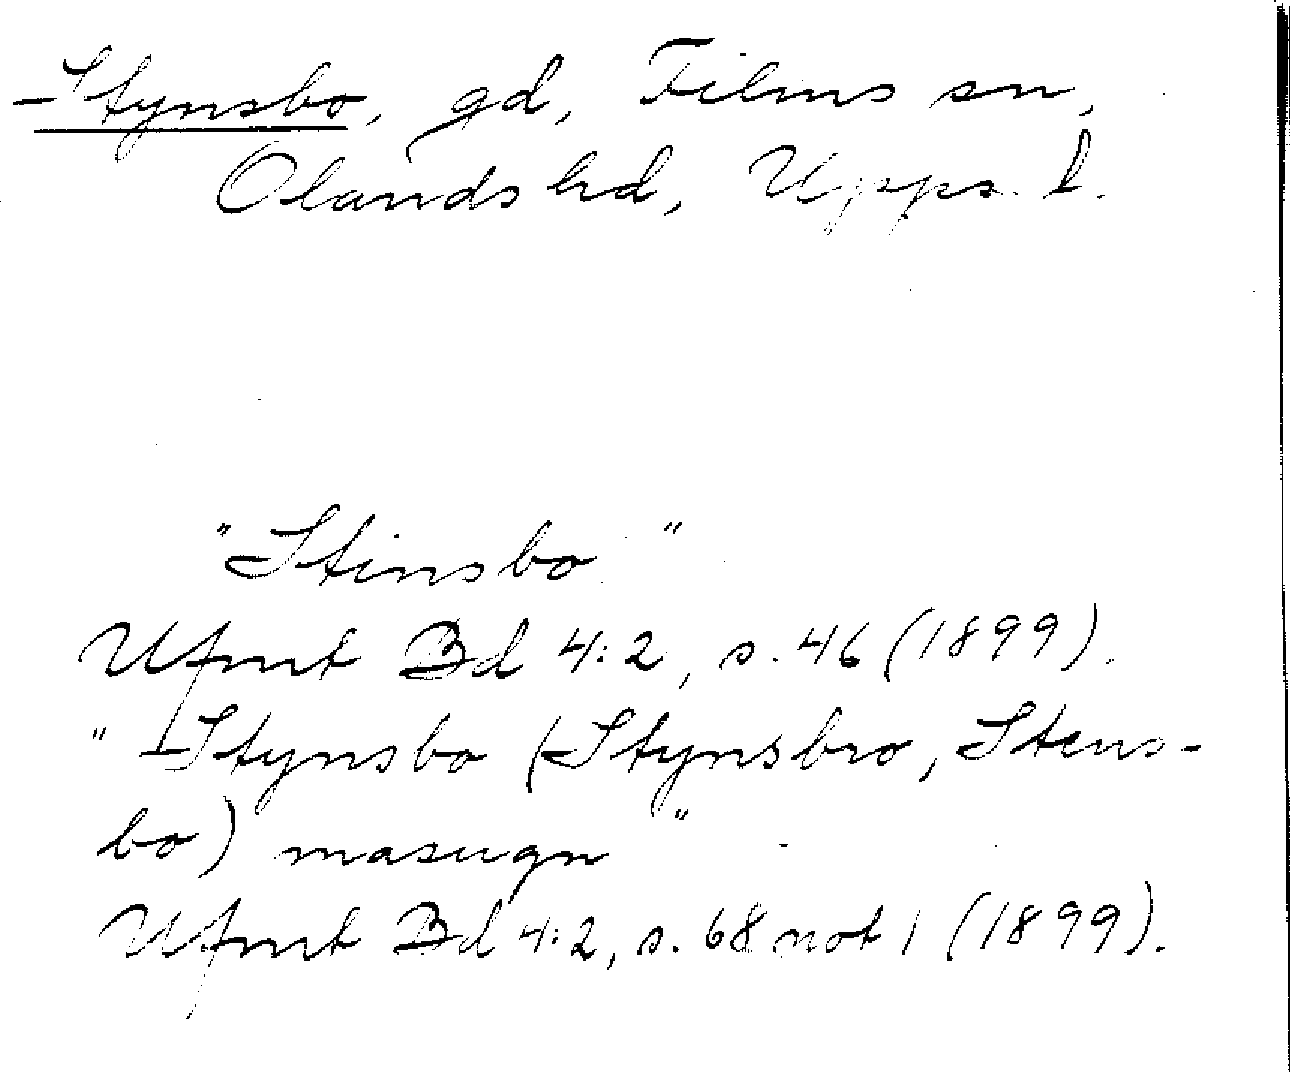 Stynsbo, gd, Films sn,
Olands hd, Upps. l.
"Stinsbo"
Ufmt Bd 4:2, s. 46 (1899).
"Stynsbo (Stynsbro, Stens-
bo) masugn"
Ufmt Bd 4:2, s. 68 not 1 (1899).